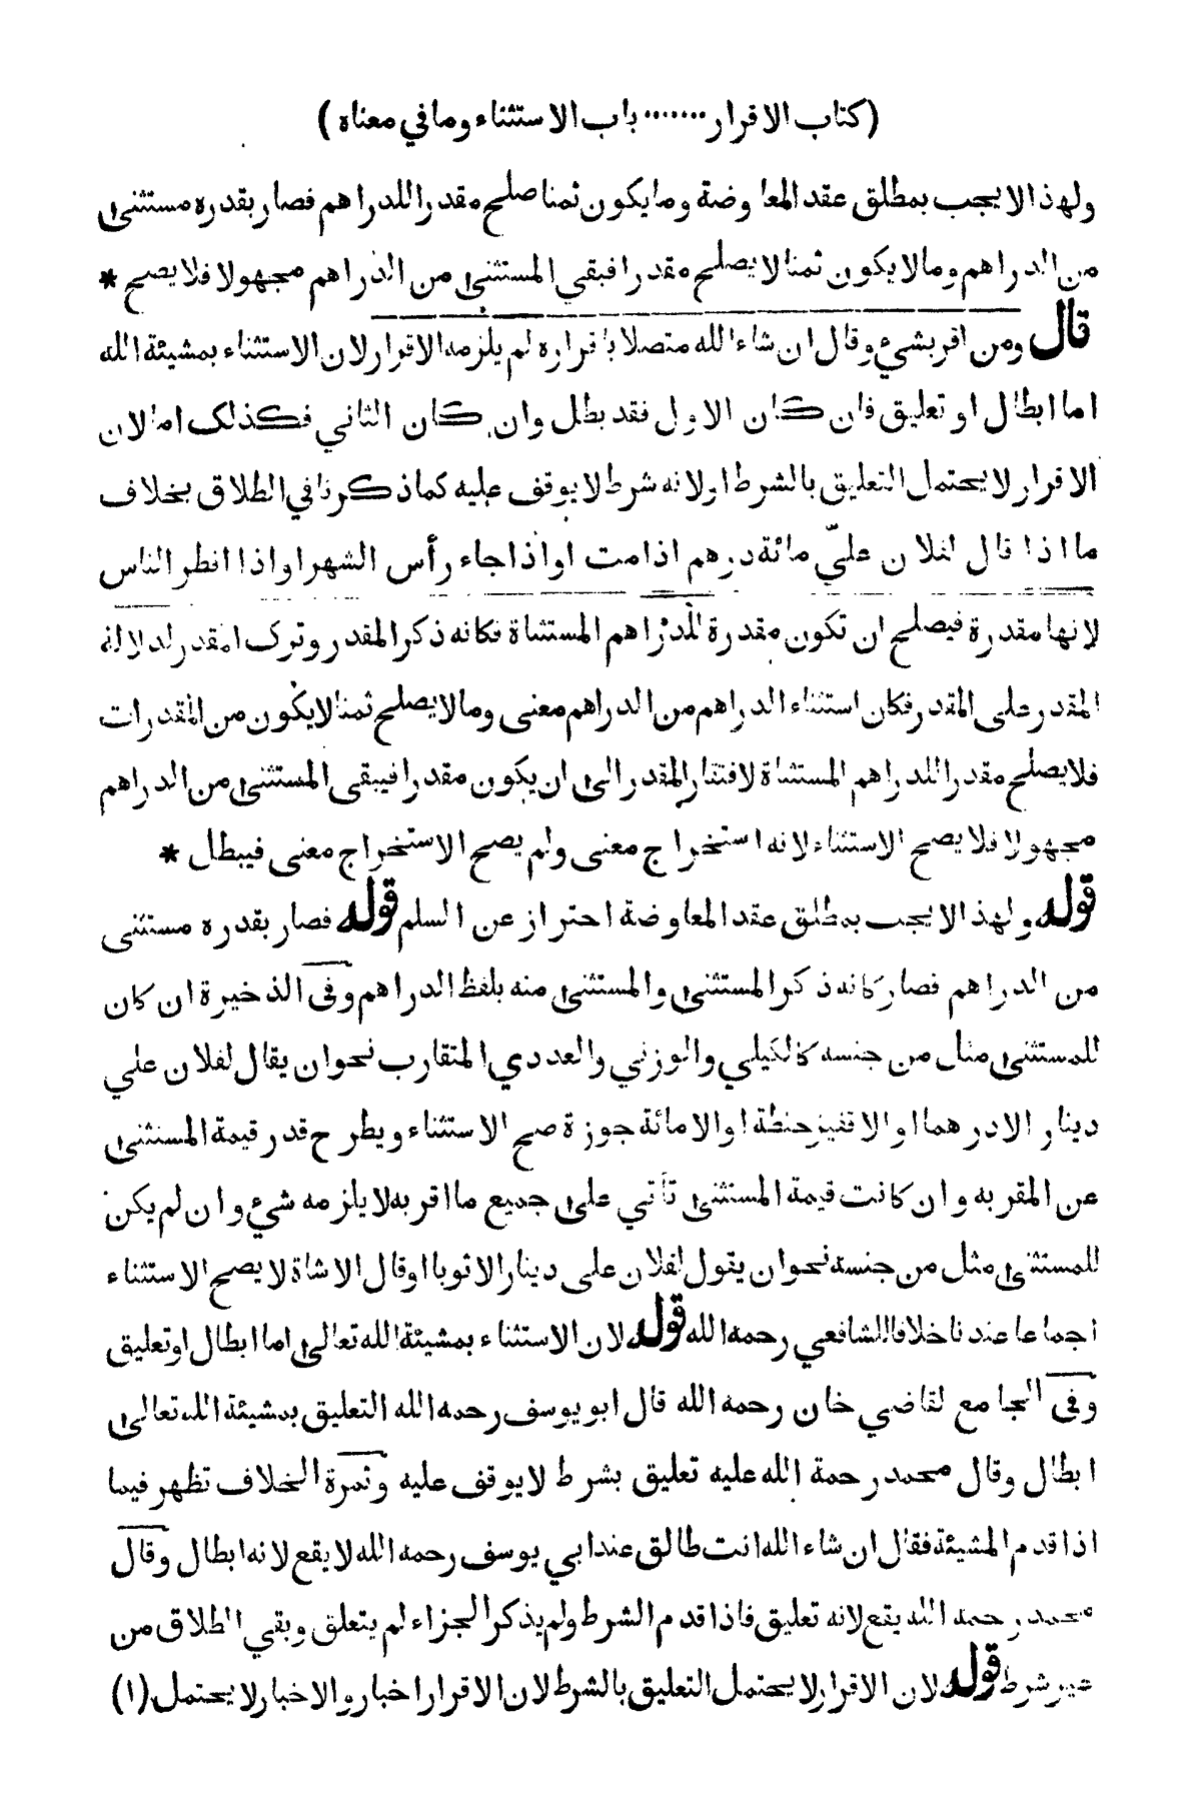 (كتاب الاقرار ....... باب الاستثناء وما في معناه)
ولهذا لا يجب بمطلق عقد المعاوضة وما يكون ثمنا صلح مقدرا للدراهم فصار بقدره مستثنى
من الدراهم وما لا يكون ثمنا لا يصلح مقدرا فبقي المستثنى من الدراهم مجهولا فلا يصح *
قال ومن اقر بشيء وقال ان شاء الله متصلا باقراره لم يلزمه الاقرار لان الاستثناء بمشيئة الله
اما ابطال او تعليق فان كان الاول فقد بطل وان كان الثاني فكذلك اما لان
الاقرار لا يحتمل التعليق بالشرط او لانه شرط لا يوقف عليه كما ذكرنا في الطلاق بخلاف
ما اذا قال لفلان عليّ مائة درهم اذا مت او اذا جاء رأس الشهر او اذا افطر الناس
لانها مقدرة فيصلح ان تكون مقدرة للدراهم المستثناة فكانه ذكر المقدر وترك المقدر لدلالة
المقدر على المقدر فكان استثناء الدراهم من الدراهم معنى وما لا يصلح ثمنا لا يكون من المقدرات
فلا يصلح مقدرا للدراهم المستثناة لافتقار المقدر الى ان يكون مقدرا فيبقى المستثنى من الدراهم
مجهولا فلا يصح الاستثناء لانه استخراج معنى ولم يصح الاستخراج معنى فيبطل *
قوله ولهذا لا يجب بمطلق عقد المعاوضة احتراز عن السلم قوله فصار بقدره مستثنى
من الدراهم فصار كانه ذكر المستثنى والمستثنى منه بلفظ الدراهم وفى الذخيرة ان كان
للمستثنى مثل من جنسه كالكيلي والوزني والعددي المتقارب نحو ان يقال لفلان علي
دينار الا درهما او الا قفيز حنطة او الا مائة جوزة صح الاستثناء ويطرح قدر قيمة المستثنى
عن المقر به وان كانت قيمة المستثنى تأتي على جميع ما اقر به لا يلزمه شيء وان لم يكن
للمستثنى مثل من جنسه نحو ان يقول لفلان على دينار الا ثوبا او قال الا شاة لا يصح الاستثناء
اجماعا عندنا خلافا للشافعي رحمه الله قوله لان الاستثناء بمشيئة الله تعالى اما ابطال او تعليق
وفى الجامع لقاضي خان رحمه الله قال ابو يوسف رحمه الله التعليق بمشيئة الله تعالى
ابطال وقال محمد رحمة الله عليه تعليق بشرط لا يوقف عليه وثمرة الخلاف تظهر فيما
اذا قدم المشيئة فقال ان شاء الله انت طالق عند ابي يوسف رحمه الله لا يقع لانه ابطال وقال
محمد رحمه الله يقع لانه تعليق فاذا قدم الشرط ولم يذكر الجزاء لم يتعلق وبقي الطلاق من
غير شرط قوله لان الاقرار لا يحتمل التعليق بالشرط لان الاقرار اخبار والاخبار لا يحتمل (۱)